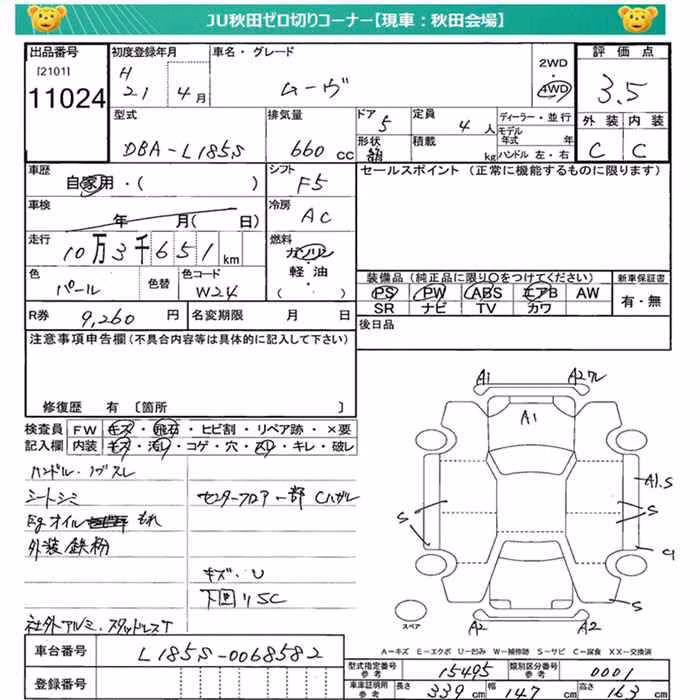 JU秋田ゼロ切りコーナー【現車：秋田会場】
出品番号 初度登録年月 車名・グレード 2WD 評価点
[2101] H 4WD
11024 21 4月 ムーヴ 3.5
型式 排気量 ドア 定員 ディーラー・並行 外装 内装
DBA-L185S 660cc 5 4人 モデル年式 年
形状 積載 kg ハンドル 左・右 C C
車歴 シフト セールスポイント（正常に機能するものに限ります）
自家用・( ) F5
車検 冷房
年 月( 日) AC
走行 燃料
10万3千651km ガソリン
軽油
色 色替 色コード ( )
パール W24
装備品（純正品に限り○をつけてください） 新車保証書
PS PW ABS エアB AW 有・無
SR ナビ TV カワ
R券 9,260円 名変期限 月 日 後日品
注意事項申告欄（不具合内容等は具体的に記入して下さい）
修復歴 有 〔箇所 〕
検査員 FW キズ・飛石・ヒビ割・リペア跡・×要
記入欄 内装 キズ・汚レ・コゲ・穴・スレ・キレ・破レ
ハンドル・ノブスレ
シートシミ センターフロアー部Cハガレ
Egオイルもれ
外装鉄粉
キズ・U
下回リSC
社外アルミ・スタッドレスT
A1 A2ワレ
A1
A1.S
S S S
C
S
A2 A2
スペア
A－キズ E－エクボ U－凹み W－補修跡 S－サビ C－腐食 XX－交換済
車台番号 L185S-0068582
登録番号
型式指定番号 参考 15495 類別区分番号 参考 0001
車庫証明用 参考 長さ 339cm 幅 147cm 高さ 163cm